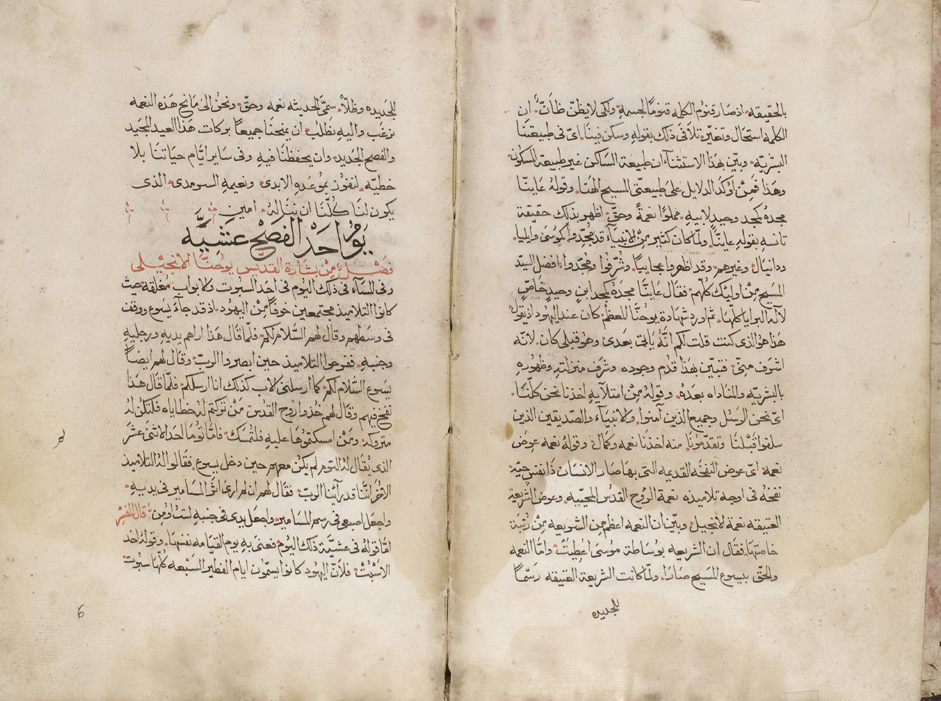 بالحقيقه. اذ صار قنوم الكلمه قنومًا لجسمه. ولكي لا يظن ظانّ. ان
الكلمه استحال وتغير. تلافي ذلك بقوله وسكن فينا. اي في طبيعتنا
البشريه. وبين بهذا الاستثناء ان طبيعة الساكن غير طبيعة المسكون
وهذا فمن اوكد الدلايل علي طبيعتي المسيح الهنا. وقوله عاينا
مجده كمجد وحيد لابيه. مملوا نعمةً وحقّ. اظهر بذلك حقيقة
تانسه بقوله عاينا. ولما كان كثير من الانبياء قد مجدوا. كموسي وايليا
ودانيال. وغيرهم. وقد ظهروا عجايبيا. وشرفوا ومجدوا. افضل السيد
المسيح من اوليك كلهم. فقال عاينا مجده كمجد ابن وحيد خاص
لاله البرايا كلها. ثم اورد شهادة يوحنا المعظم كان عند اليهود اذ يقول
هذا هو الذي كنت قلت لكم انه ياتي بعدي. وهو قبلي كان. لانه
اشرف مني. فبين بهذا قدم وجوده. وشرف منزلته. وظهوره
بالبشريه. والمناداه بعده. وقوله من امتلايه اخذنا نحن كلنا.
اي نحن الرسل وجميع الذين آمنوا. والانبياء. والصديقين الذين
سلفوا قبلنا وتقدمونا منه اخذنا نعمه وكمال. وقوله نعمه عوض
نعمه. اي عوض النفخه القديمه التي بها صار الانسان ذا نفس حيه
نفخه في اوجه تلاميذه نعمة الروح القدس المحييه. وعوض الشريعة
العتيقه نعمة الانجيل. وبين ان النعمه اعظم من الشريعه من رتبة
خاصتها. فقال ان الشريعه بوساطة موسي اعطيت. واما النعمه
والحق بيسوع المسيح صارا. ولما كانت الشريعة العتيقه رسمًا
للجديده
للجديده وظلاً. سمي الحديثه نعمه وحق. ونحن الي مانح هذه النعمه
نرغب واليه نطلب. ان يمنحنا جميعًا بركات هذا العيد المجيد
والفصح الجديد. وان يحفظنا فيه وفي ساير ايام حياتنا بلا
خطيه. لنفوز بموعده الابدي. ونعيمه السرمدي. الذي
يكون لنا كلنا ان نناله. امين
يوم احد الفصح عشيّه
فصل من بشارة القديس يوحنا الانجيلي
وفي المساء في ذلك اليوم في احد السبوت والابواب مغلقه حيث
كانوا التلاميذ مجتمعين خوفًا من اليهود. اذ قد جاء يسوع ووقف
في وسطهم وقال لهم السلام لكم. فلما قال هذا اراهم يديه ورجليه
وجنبه. ففرحوا التلاميذ حين ابصروا الرب. وقال لهم ايضًا
يسوع السلام لكم. كما ارسلني الاب كذلك انا ارسلكم. فلما قال هذا
نفخ فيهم وقال لهم خذوا روح القدس. من تركتم له خطاياه فلتكن له
متروكه. ومن امسكتموها عليه فلتمسك. فاما توما احد الاثني عشر
الذي يقال له التوم لم يكن معهم حين دخل يسوع. فقالوا له التلاميذ
الاخر اننا قد راينا الرب. فقال لهم ان لم اري اثر المسامير في يديه.
واجعل اصبعي في رسم المسامير. واجعل يدي في جنبه لست اومن. قال المفسّر
اما قوله في عشية ذلك اليوم. فعني به يوم القيامه نفسها. وقوله احد
السبت. فلان اليهود كانوا يسمون ايام الفطير السبعه كلها سبوت
6